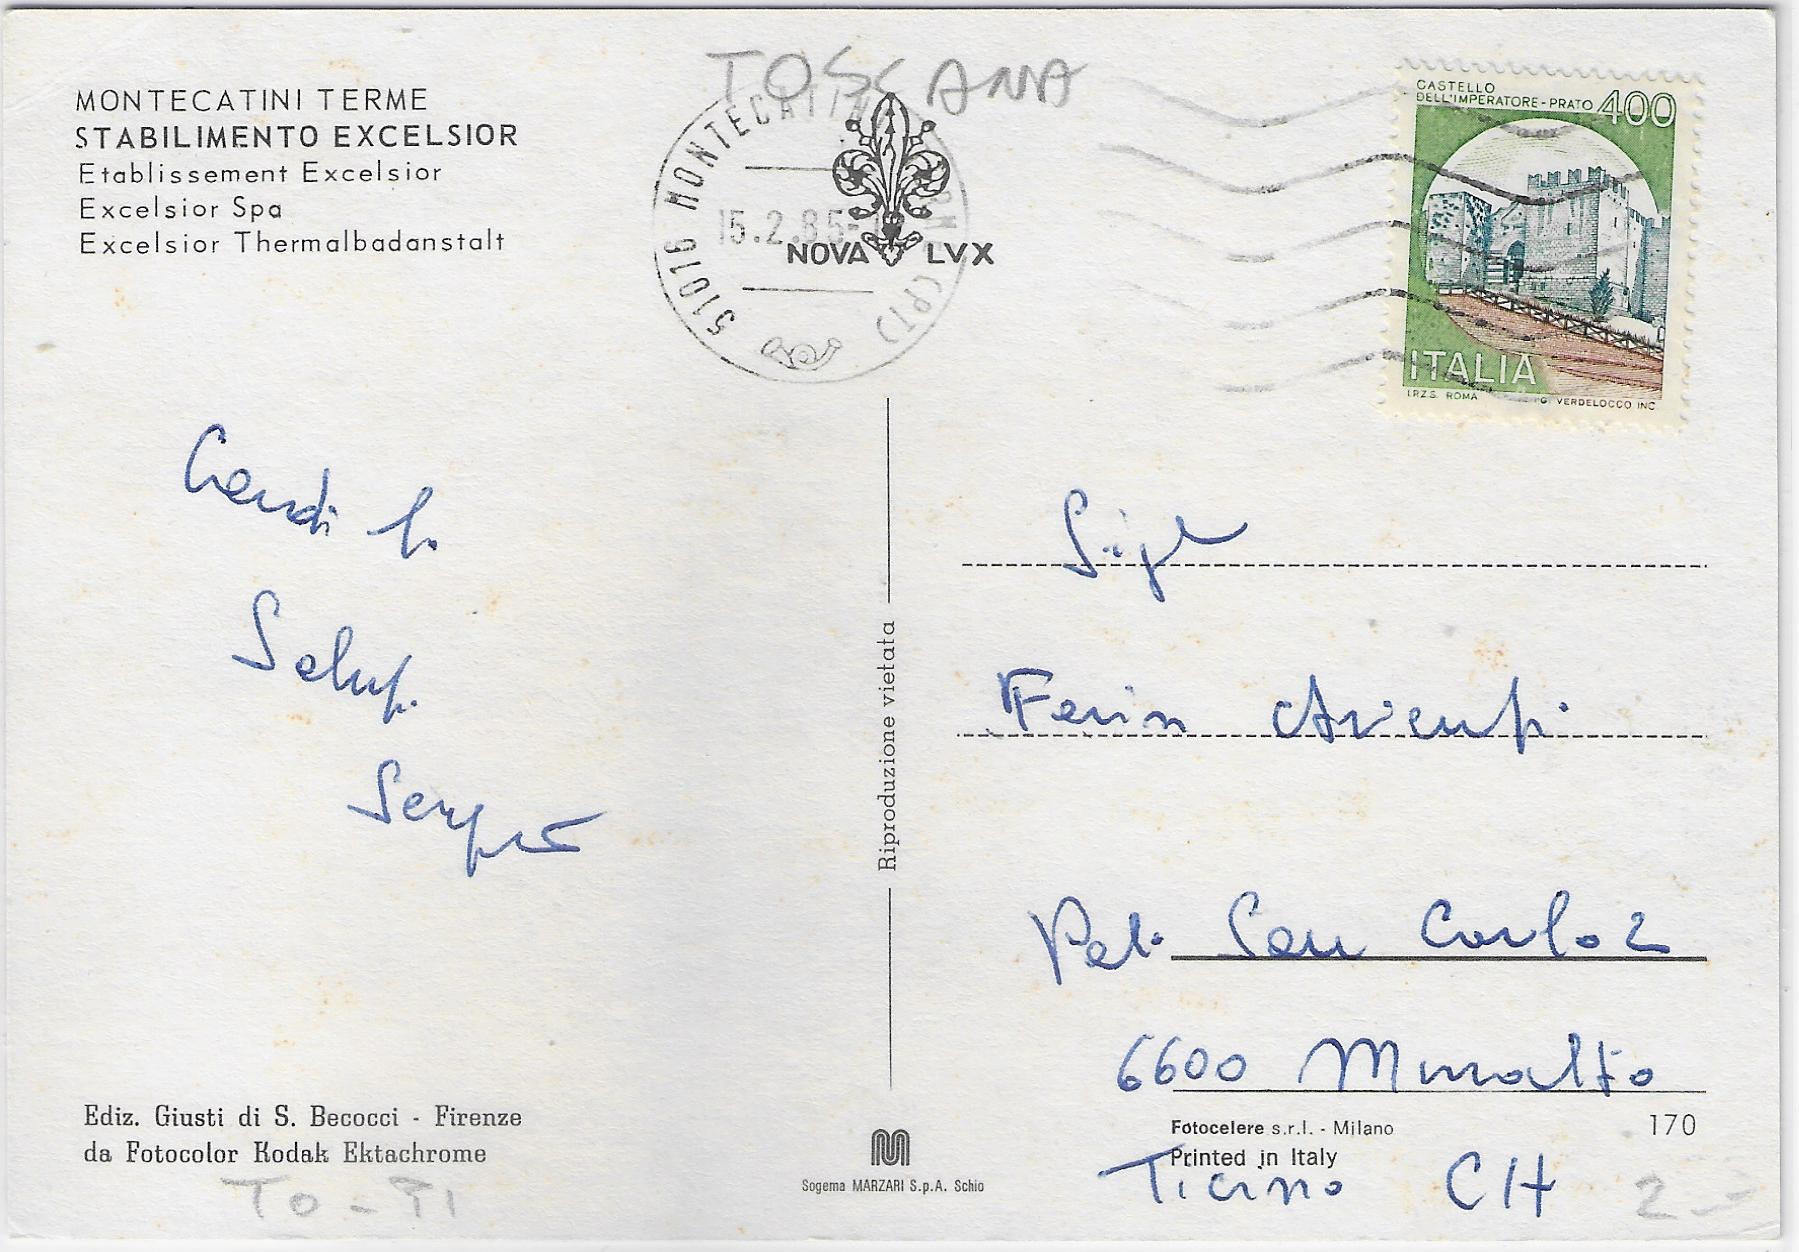 TOSCANA
MONTECATINI TERME
STABILIMENTO EXCELSIOR
Etablissement Excelsior
Excelsior Spa
Excelsior Thermalbadanstalt
51016 MONTECATINI (PT)
15.2.85
NOVA LVX
CASTELLO
DELL'IMPERATORE - PRATO 400
ITALIA
I.P.Z.S. ROMA VERDELOCCO INC
Saluti
Sergio
Riproduzione vietata
San Carlo 2
6600 Muralto
Ticino CH
Ediz. Giusti di S. Becocci - Firenze
da Fotocolor Kodak Ektachrome
TO - PI
Sogema MARZARI S.p.A. Schio
Fotocelere s.r.l. - Milano
Printed in Italy
170
2.-